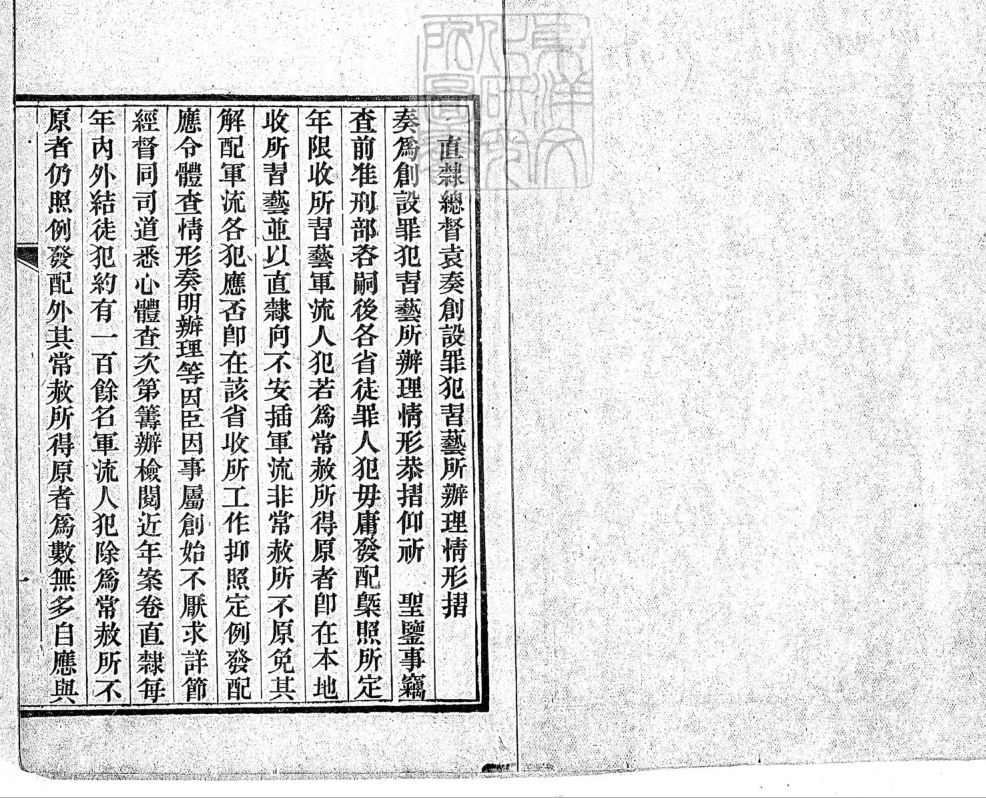 直隸總督袁奏創設罪犯習藝所辦理情形摺
奏爲創設罪犯習藝所辦理情形恭摺仰祈　聖鑒事竊
查前准刑部咨嗣後各省徒罪人犯毋庸發配槩照所定
年限收所習藝軍流人犯若爲常赦所得原者卽在本地
收所習藝並以直隸向不安插軍流非常赦所不原免其
解配軍流各犯應否卽在該省收所工作抑照定例發配
應令體查情形奏明辦理等因臣因事屬創始不厭求詳節
經督同司道悉心體查次第籌辦檢閱近年案卷直隸每
年內外結徒犯約有一百餘名軍流人犯除爲常赦所不
原者仍照例發配外其常赦所得原者爲數無多自應與
一
東洋文
化研究
所圖書